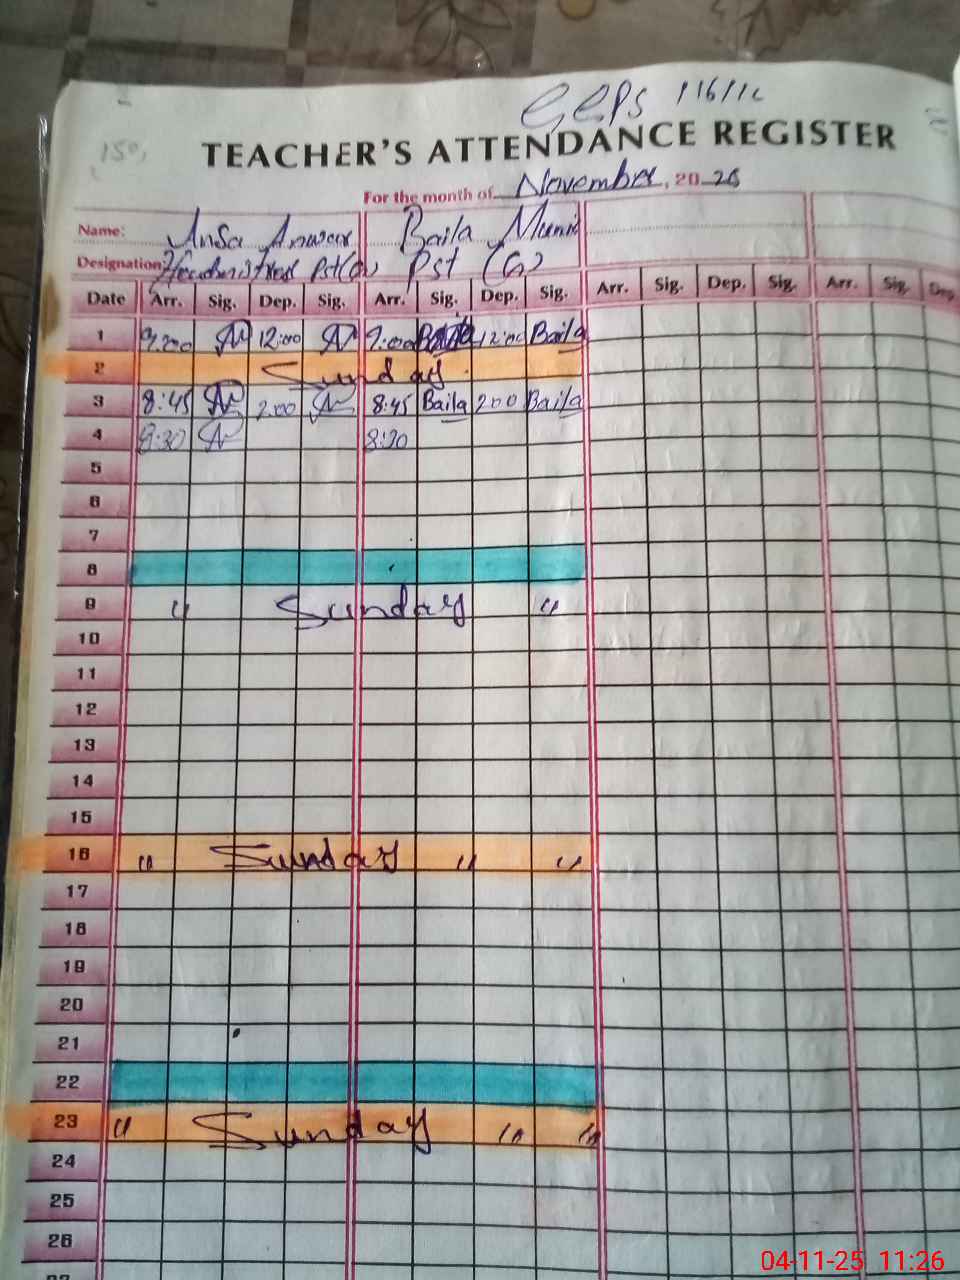 GGPS 116/1L
150,
TEACHER'S ATTENDANCE REGISTER
For the month of November, 2025
Name: Ansa Anwar Baila Munir
Designation: Pst(G) Pst (G)
Date Arr. Sig. Dep. Sig. Arr. Sig. Dep. Sig. Arr. Sig. Dep. Sig. Arr. Sig. Dep.
1 9:00 12:00 9:00 Baila 12:00 Baila
2 Sunday
3 8:45 2:00 8:45 Baila 2:00 Baila
4 8:30 8:30
5
6
7
8
9 " Sunday "
10
11
12
13
14
15
16 " Sunday " "
17
18
19
20
21
22
23 " Sunday " "
24
25
26
04-11-25 11:26